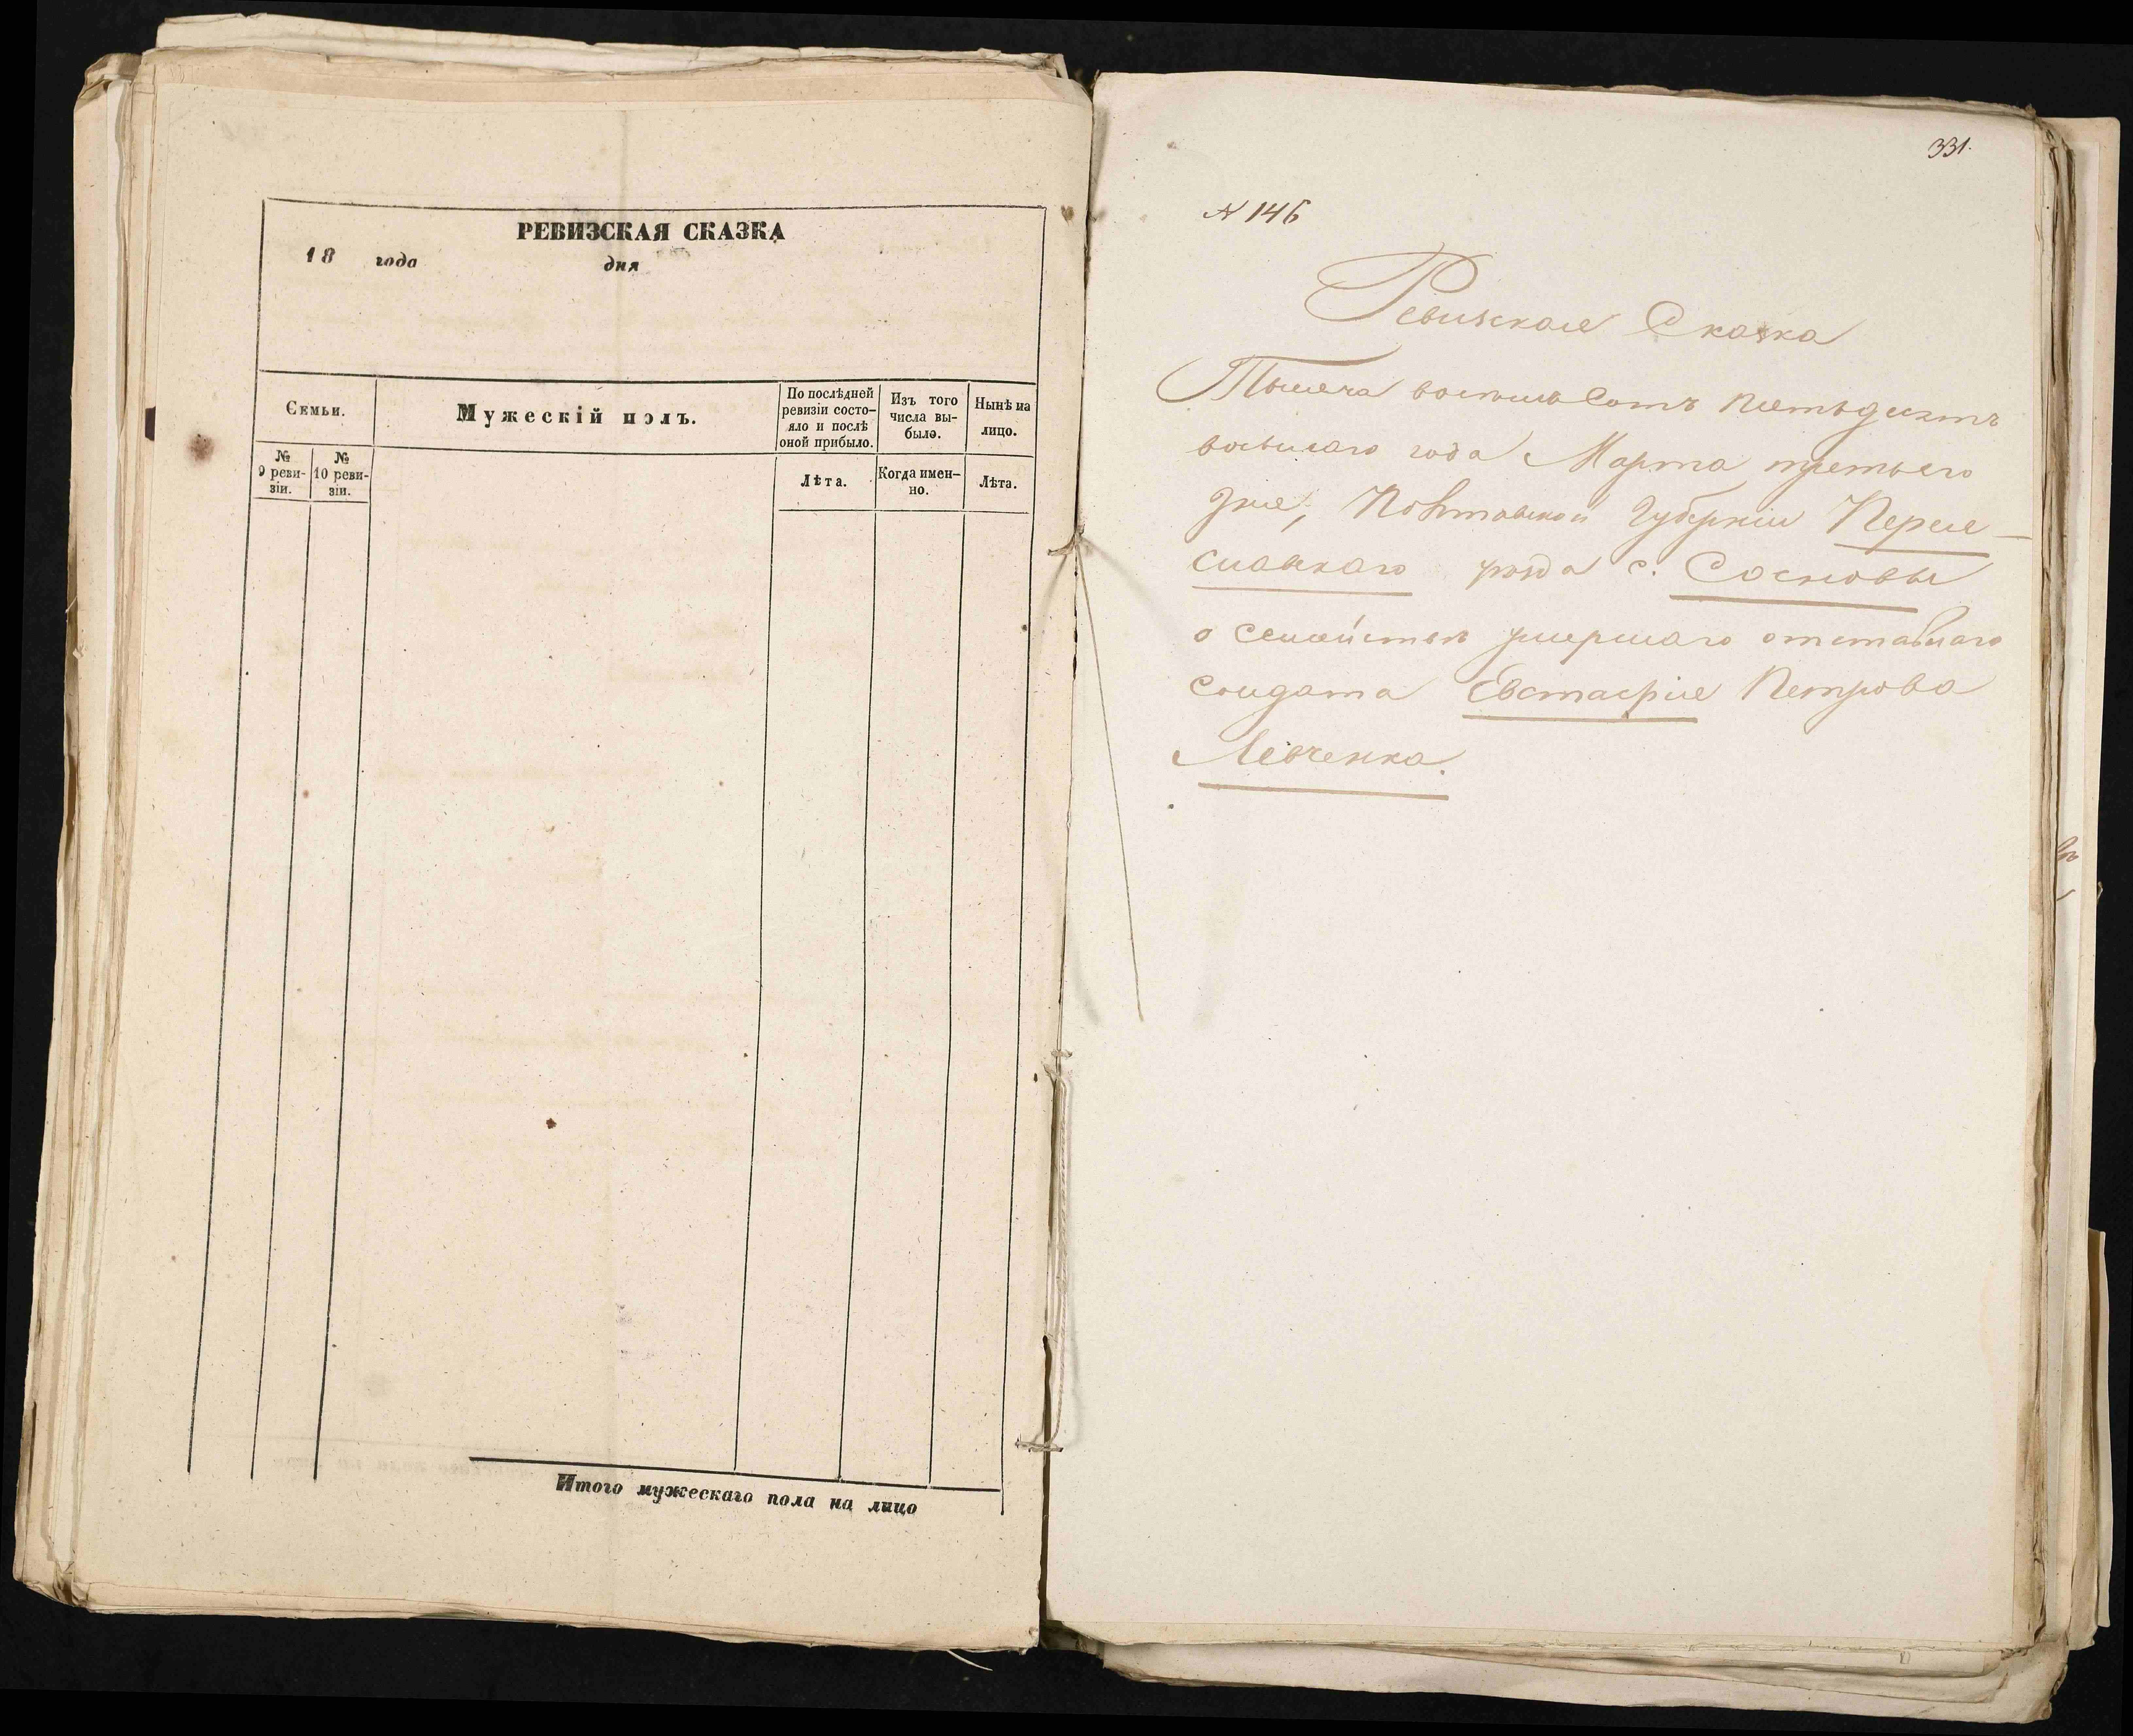 РЕВИЗСКАЯ СКАЗКА
18 года дня
Семьи.
Мужескій полъ.
По послѣдней
ревизіи состо-
яло и послѣ
оной прибыло.
Изъ того
числа вы-
было.
Нынѣ на
лицо.
№
9 реви-
зіи.
№
10 реви-
зіи.
Лѣта.
Когда имен-
но.
Лѣта.
Итого мужескаго пола на лицо
331.
№ 146
Ревизская Сказка
Тысяча восемь Сотъ пятьдесятъ
восьмаго года Марта третьего
дня, Полтавской Губерніи Перея-
славскаго уѣзда с. Сосновы
о Семействѣ умершаго отставнаго
Солдата Евстафія Петрова
Левченка.